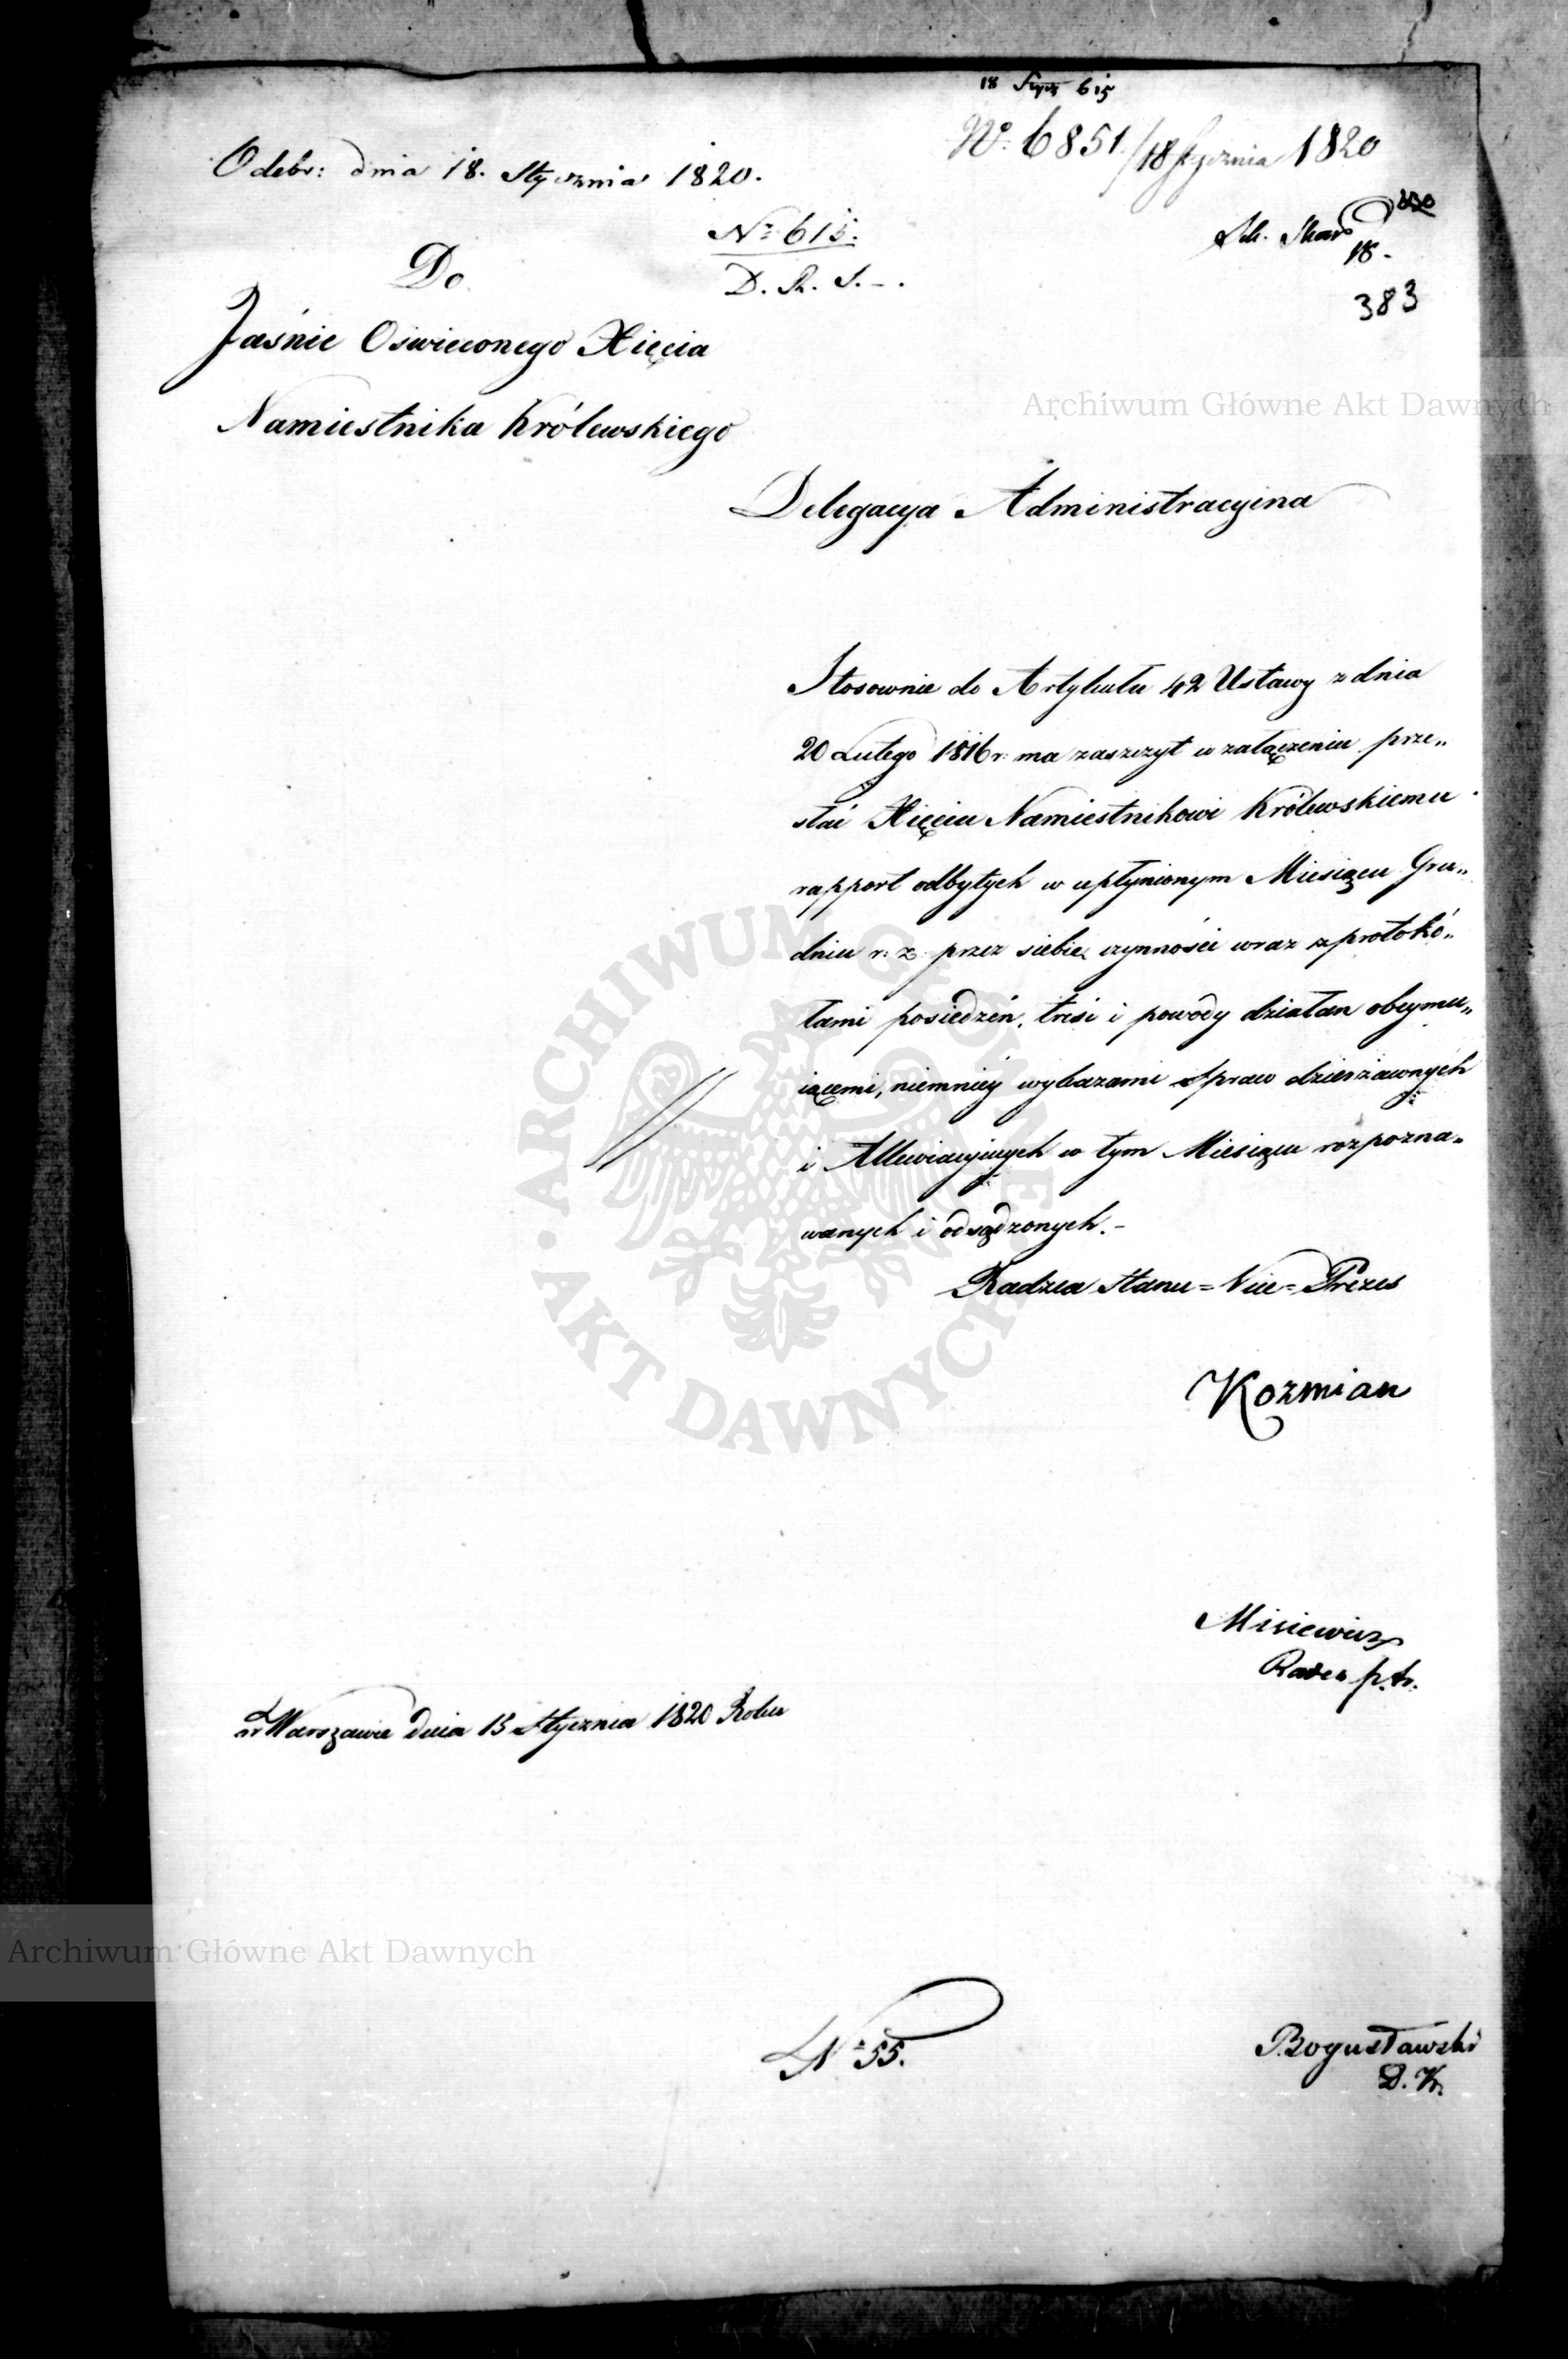 18 Stycz 615
Nº 6851/18 Stycznia 1820
Odebr: dnia 18. Stycznia 1820.
Nº 615.
D. R. S. - .
18.
383
Do
Jaśnie Oświeconego Xięcia
Namiestnika Królewskiego
Delegacya Administracyina
Stosownie do Artykułu 42 Ustawy z dnia
20 Lutego 1816 r: ma zaszczyt w załączeniu prze„
słać Xięciu Namiestnikowi Królewskiemu
rapport odbytych w upłynionym Miesiącu Gru„
dniu r: z: przez siebie czynności wraz z protokó„
łami posiedzeń, treść i powody działań obeymu„
iącemi, niemniéy wykazami Spraw dzierżawnych
i Allewiacyinych w tym Miesiącu rozpozna„
wanych i odsądzonych. -
Radzca Stanu = Vice = Prezes
Kozmian
Misiewicz
Radca p. tr.
w Warszawie dnia 15 Stycznia 1820 Roku
Nº 55.
Bogusławski
D. K.
Archiwum Główne Akt Dawnych
ARCHIWUM GŁÓWNE · AKT DAWNYCH
Archiwum Główne Akt Dawnych